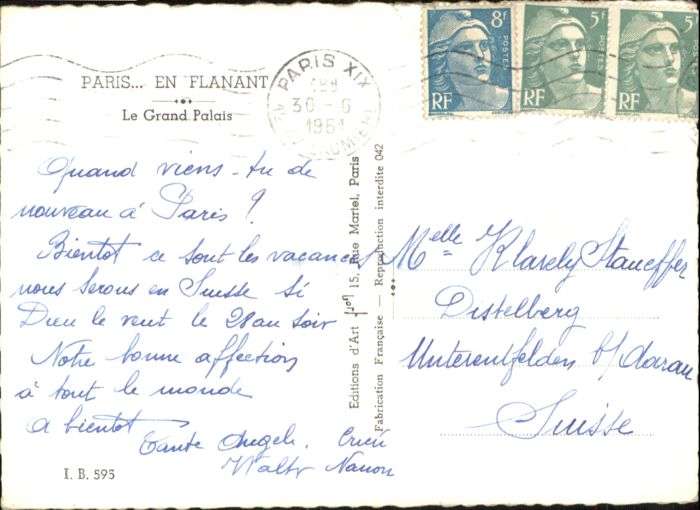 PARIS... EN FLANANT
Le Grand Palais
Quand viens-tu de
nouveau à Paris ?
Bientot ce sont les vacances
nous serons en Suisse si
Dieu le veut le 28 au soir
Notre bonne affection
à tout le monde
a bientot
Tante Angèle.
Walty Nanon
I. B. 595
Editions d'Art 15, Rue Martel, Paris
Fabrication Française — Reproduction interdite 042
PARIS XIX
30 - 6
1951
8F
POSTES
RF
5F
POSTES
RF
5
RF
Melle Klarely Stauffer
Distelberg
Unterentfelden b/Aarau
Suisse